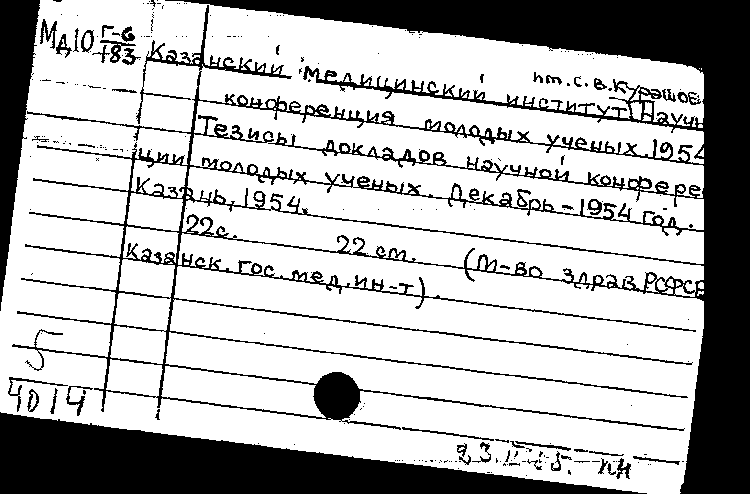 МД10 Г-6
183
им. С.В. Курашов
Казанский медицинский институт Научн
конференция молодых ученых. 1954
Тезисы докладов научной конферен
ции молодых ученых. Декабрь - 1954 год.
Казань, 1954.
22с. 22 см. (М-во здрав. РСФСР
Казанск. гос. мед. ин-т).
5
4014
23. II